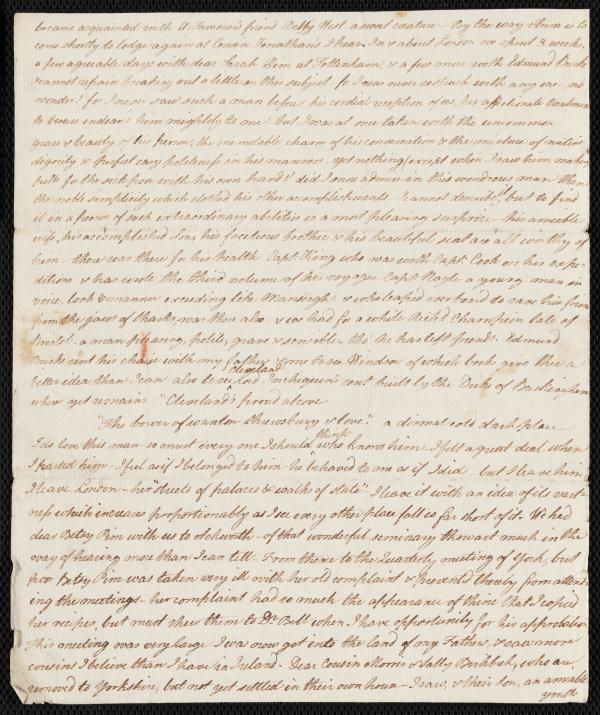 became acquainted with A: Fawcner's friend Betsy West a sweet creature – By the way Anna is to
come shortly to lodge again at Cousin Jonathan's I hear. In & about London we spent 3 weeks,
a few agreeable days with dear Sarah Pim at Tottenham, & a few more with Edmund Burke
I cannot refrain breaking out a little on this subject, for I was never so struck with any one – no
wonder! for I never saw such a man before his cordial reception of us, his affectionate
to burue endears him mightily to me but I was at once taken with the uncommon
grace & beauty of his person, the inimitable charm of his conversation & the mixture of native
dignity & graceful easy politeness in his manner – yet nothing (except when I saw him making
pills for the sick poor with his own hand) did I more admire in this wondrous man than
the noble simplicity which clothed his other accomplishments I cannot describe it, but to find
it in a person of such extraordinary abilities is a most pleasing surprize – his amiable
wife, his accomplished son, his facetious brother & his beautiful seat are all worthy of
him – there was there for his health Capt: King who was with Capt: Cook on his expe-
ditions & has wrote the third volume of his voyages Capt: Nagle a young man in
voice, look & manner exceeding like Mansergh & who leaped overboard to save his friend
from the jaws of sharks, was there also & we had for a while Rich:d Champion late of
Bristol a man pleasing, polite, grave & sensible – tho' he has left friends. Edmund
Burke sent his chaise with my father & me to see Windsor of which book give thee a
better idea than I can also to see Cleveland Ld. Inchequin's seat built by the Duke of Buckingham
where yet remains "Cleveden's proud alcove
"The bower of wanton Shrewsbury & love." a dismal cold dark place
I do love this man – so must every one I should think who knows him I felt a great deal when
I parted him – I feel as if I belonged to him – he behaved to me as if I did – but I leave him
I leave London – her "streets of palaces & walks of state" I leave it with an idea of its vast-
ness which increases proportionably as I see every other place fall so far short of it. We had
dear Betsy Pim with us to Ackworth – of that wonderful seminary thou art much in the
way of hearing more than I can tell – From thence to the Quarterly meeting of York, but
poor Betsy Pim was taken very ill with her old complaint & prevented thereby from attend-
ing the meetings – her complaint had so much the appearance of thine that I copied
her recipes, but must shew them to Dr. Bell when I have opportunity for his approbation
This meeting was very large I was now got into the land of my Father, & saw more
cousins I believe than I have in Ireland – Dear Cousin Morris & Sally Birkbeck, who are
removed to Yorkshire, but not yet settled in their own house – I saw, & their son, an amiable
youth